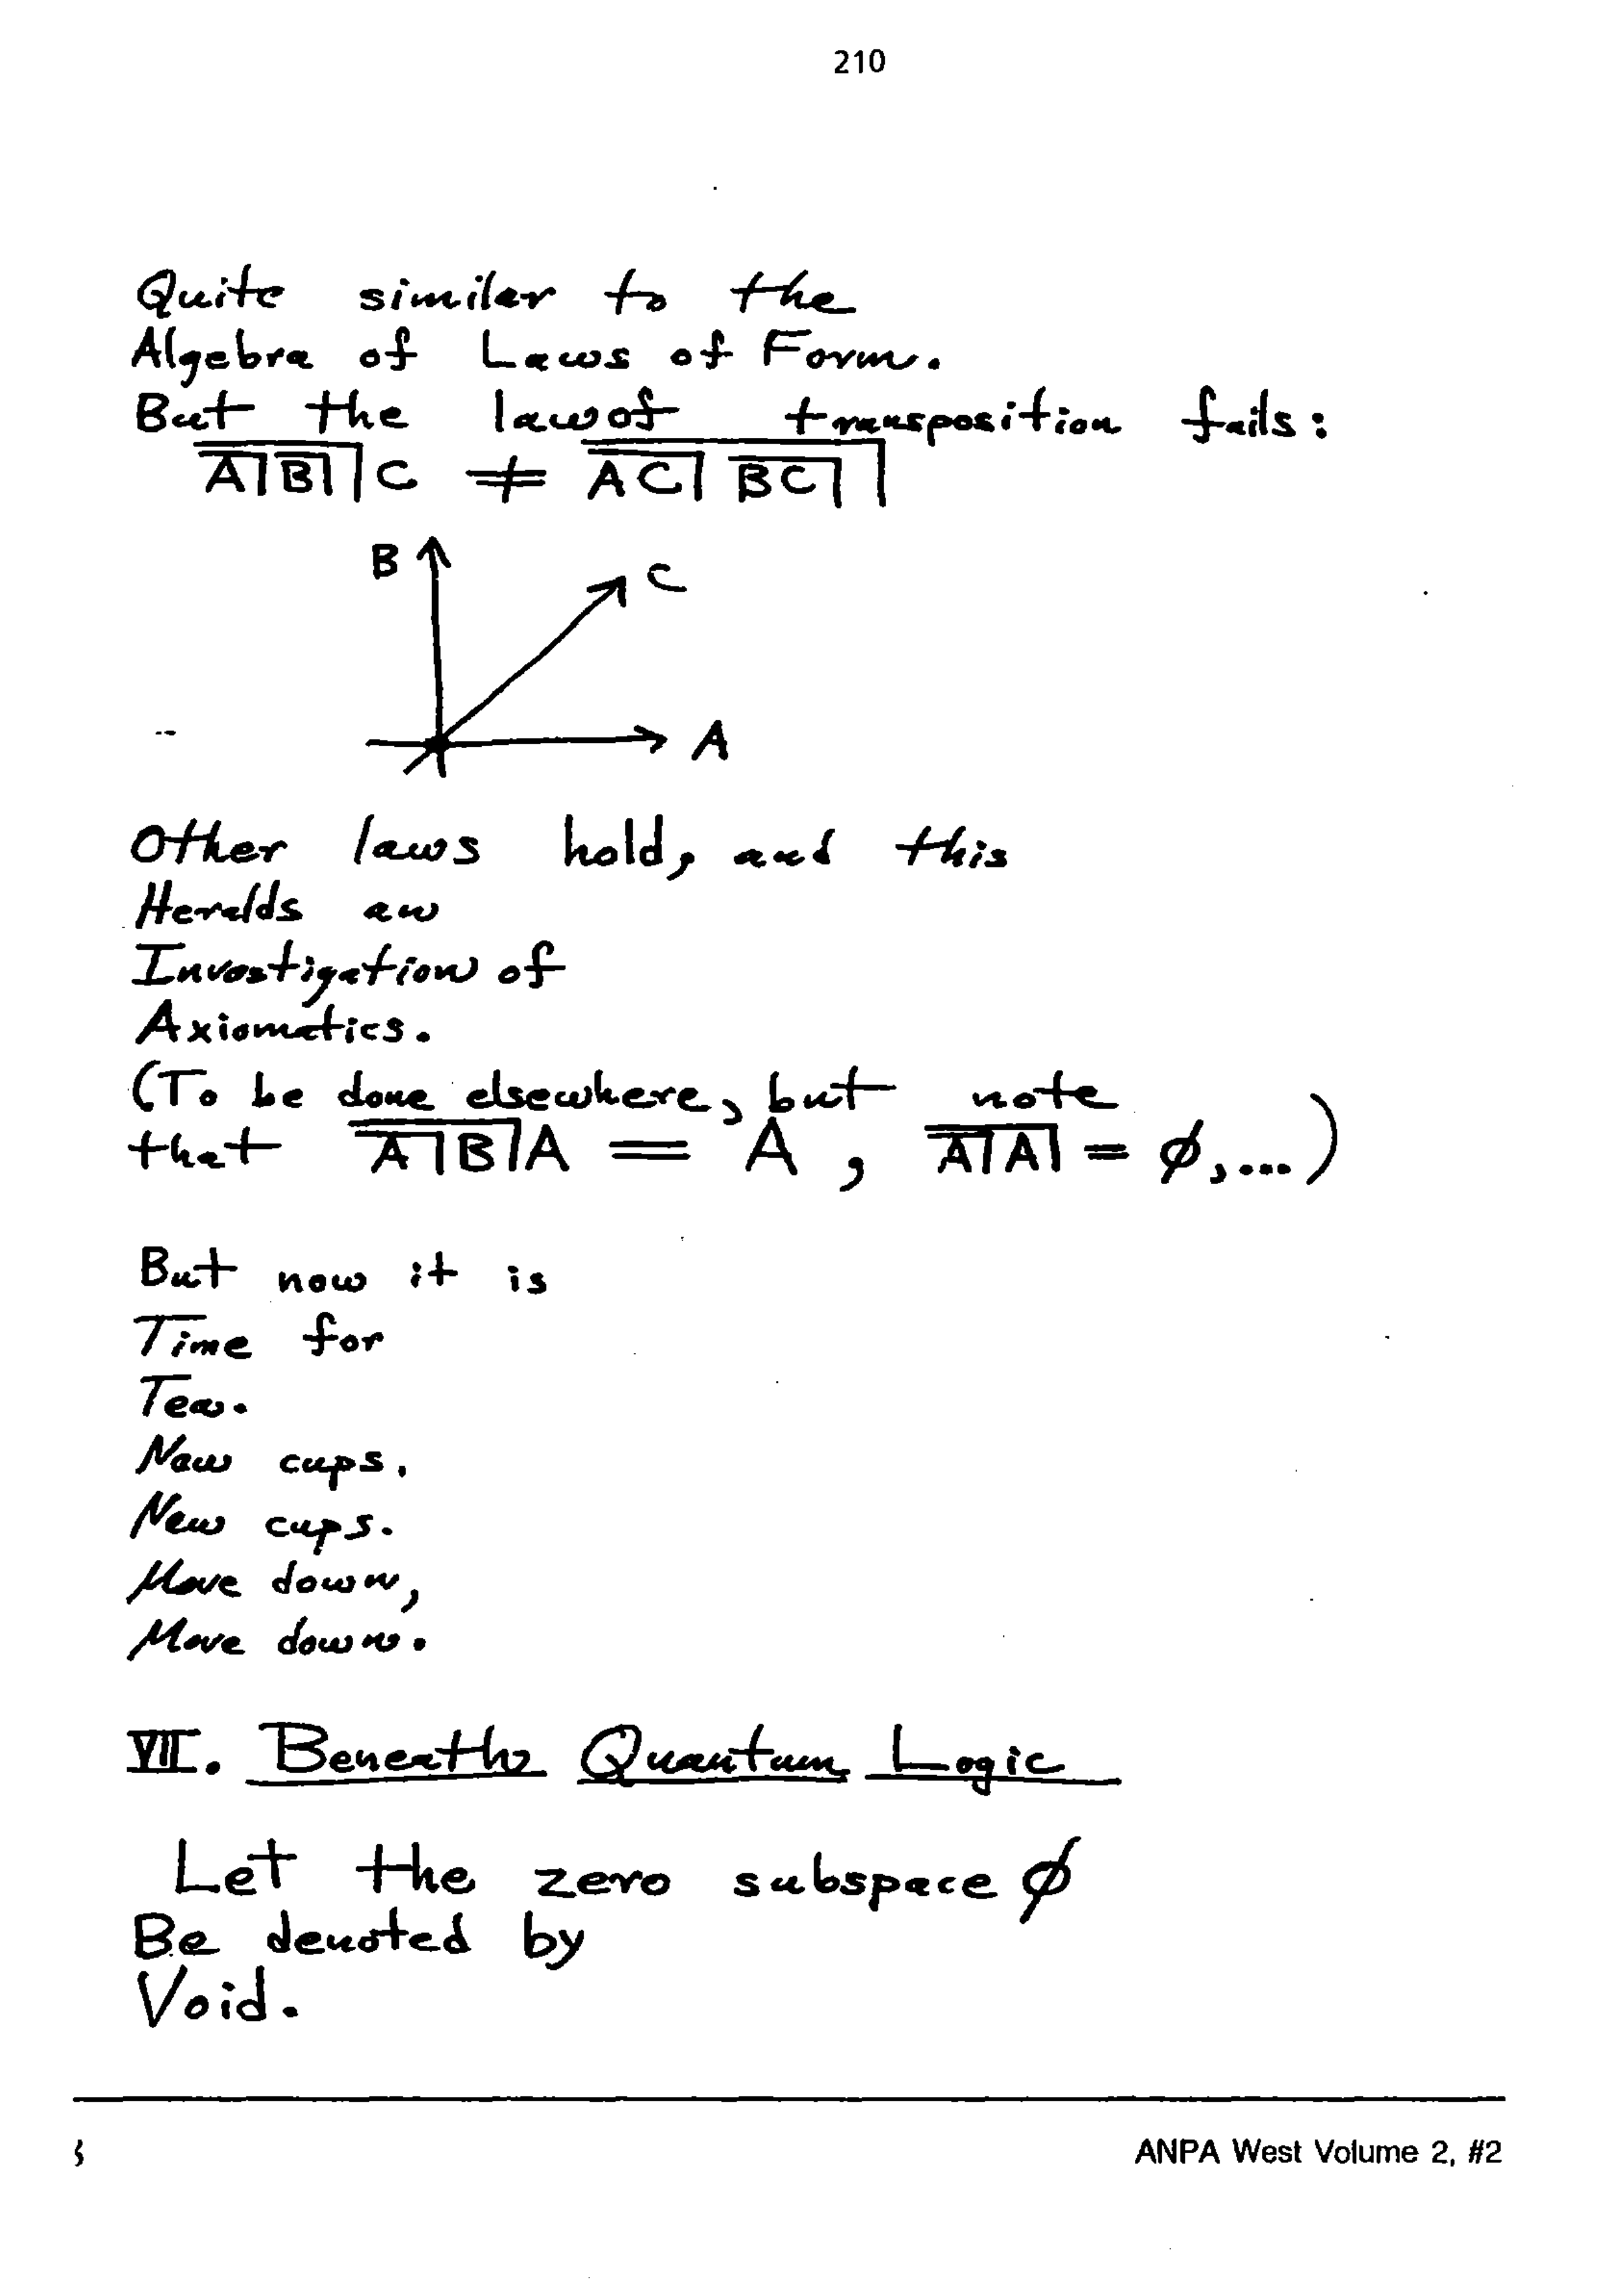 210
Quite similar to the
Algebra of Laws of Form.
But the law of transposition fails:
\overline{\overline{A|}\,\overline{B|}|} C ≠ \overline{\overline{AC|}\,\overline{BC|}|}
B
C
A
Other laws hold, and this
Heralds an
Investigation of
Axiomatics.
(To be done elsewhere, but note
that \overline{\overline{A|}B|} A = A , \overline{\overline{A|}A|} = ϕ,...)
But now it is
Time for
Tea.
New cups.
New cups.
Move down,
Move down.
VII. Beneath Quantum Logic
Let the zero subspace ϕ
Be denoted by
Void.
ANPA West Volume 2, #2